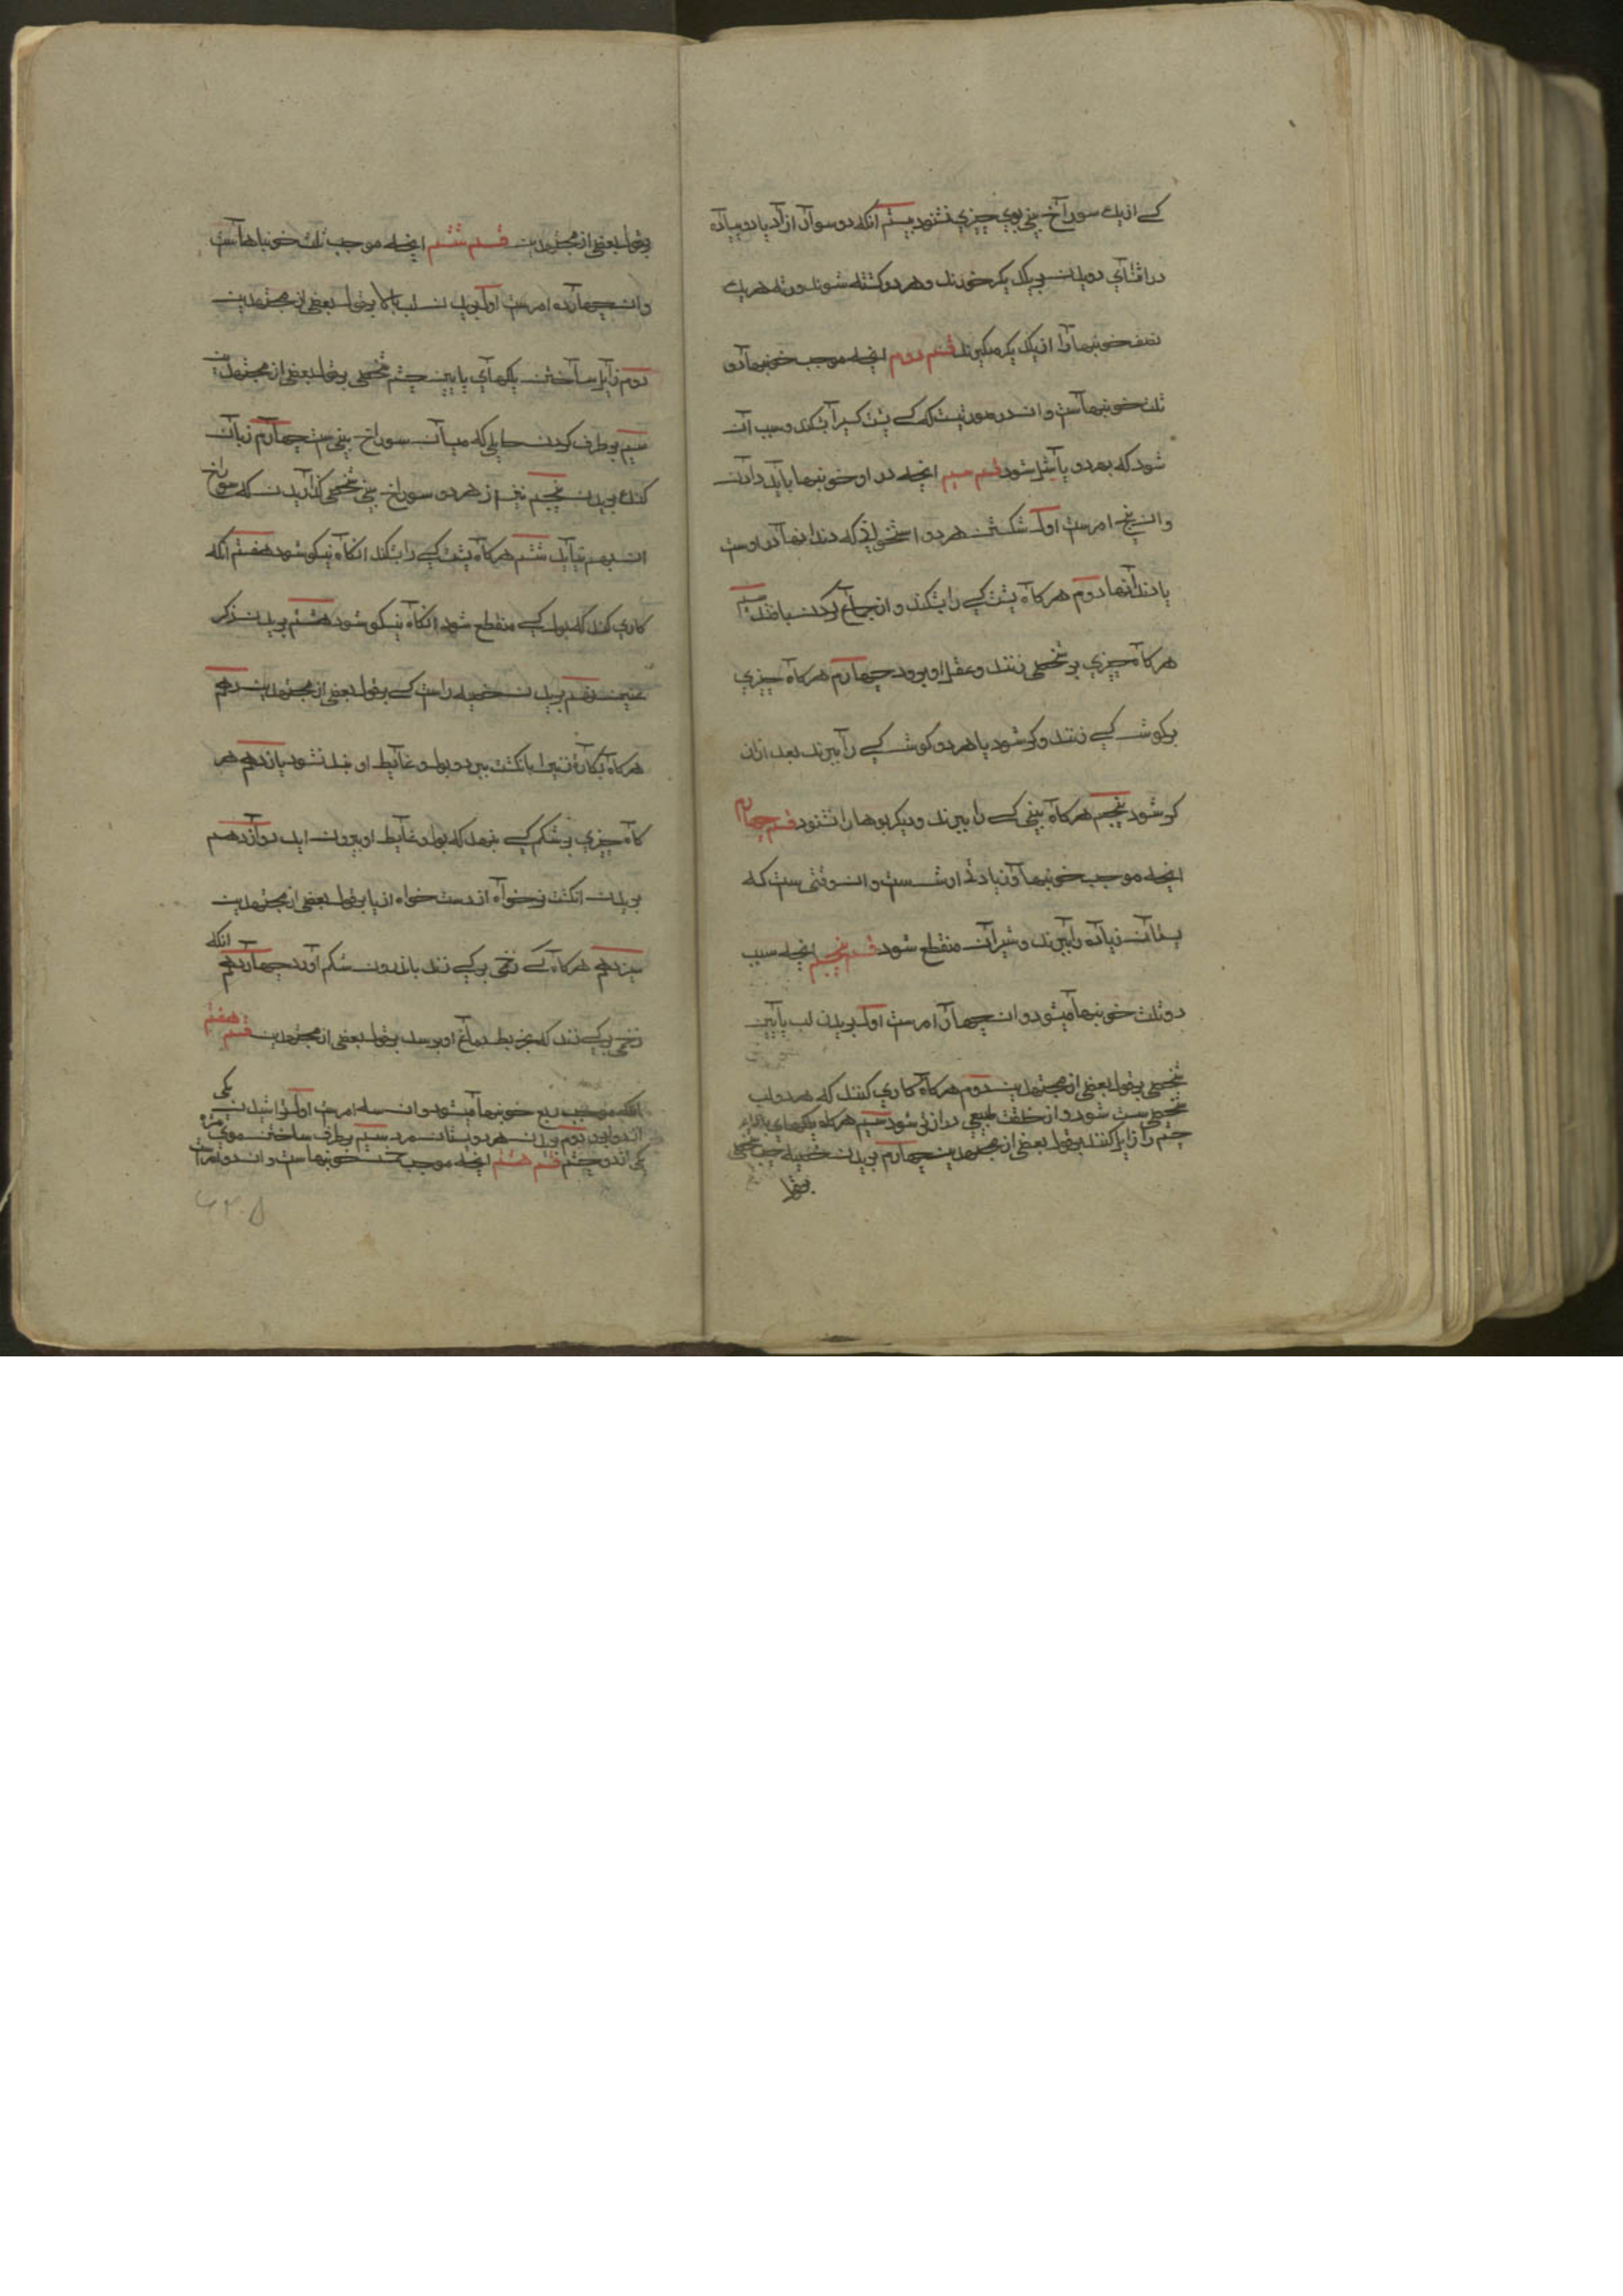 کسی از یک سوراخ بینی بوی چیزی نشنود بیستم آنکه دو سوار از اد یا دو پیاده
در اثنای دویدن بریکدیگر خورند و هر دو کشته شوند ورثه هریک
نصف خونبها را از یکدیگر میگیرند قسم دوم آنچه موجب خونبها و دو
ثلث خونبهاست و ان در صورتیست که کسی پشت کسی را بشکند و سبب آن
شود که هر دو پا شل شود قسم سیم آنچه در او خونبها باید دادن
و ان پنج امرست اول شکستن هر دو استخوانی که دندانها در اوست
با دندانها دوم هرکاه پشت کسی را بشکند و از جماع کردن بازماند سیم
هرکاه چیزی بر شخصی زنند و عقل او برود چهارم هرکاه چیزی
بر کوش کسی زنند و کر شود یا هر دو کوش کسی را ببرند بعد از ان
کر شود پنجم هرکاه بینی کسی را ببرند و دیگر بوها را نشنود قسم چهارم
آنچه موجب خونبها و زیادتی ارشست و ان وقتی ست که
پستان زنان را ببرند و شیر آن منقطع شود قسم پنجم آنچه سبب
دو ثلث خونبها میشود و ان چهار امرست اول بریدن لب پایین
شخصی بقول بعضی از مجتهدین دوم هرکاه کاری کنند که هر دو لب
شخصی سست شود و از خلقت طبیعی درازتر شود سیم هرکاه پلکهای پایین
چشم را زایل کنند بقول بعضی از مجتهدین چهارم بریدن خصیه چپ شخصی
بقول
بقول بعضی از مجتهدین قسم ششم آنچه موجب ثلث خونبهاست
و ان چهارده امرست اول بریدن لب بالا بقول بعضی از مجتهدین
دوم زایل ساختن پلکهای پایین چشم شخصی بقول بعضی از مجتهدین
سیم برطرف کردن حایلی که میان سوراخ بینی ست چهارم زبان
کنک بریدن پنجم تیر از هر دو سوراخ بینی شخصی کذرانیدن که سوراخ
ان بهم نیاید ششم هرکاه پشت کسی را بشکند انکاه نیکو شود هفتم آنکه
کاری کند که بول کسی منقطع شود انکاه نیکو شود هشتم بریدن ذکر
عنین نهم بریدن خصیه راست کسی بقول بعضی از مجتهدین دهم
هرکاه بکارة زنی را بانکشت ببرد و بول و غایط او بند نشود یازدهم هر
کاه چیزی بر شکم کسی بزند که بول و غایط او بیرون اید دوازدهم
بریدن انکشت نر خواه از دست خواه از پا بقول بعضی از مجتهدین
سیزدهم هرکاه کسی زخمی بر کسی زند باندرون شکم او رود چهاردهم انکه
زخمی بر کسی زند که بخریطه دماغ او برسد بقول بعضی از مجتهدین قسم هفتم
آنکه موجب ربع خونبها میشود و ان سه امرست اول تراشیدن یکی
از دو ابرو دوم بریدن هر دو پستان مرد سیم برطرف ساختن موی مژه
یکی از دو چشم قسم هشتم آنچه موجب خمس خونبهاست و ان دو امرست